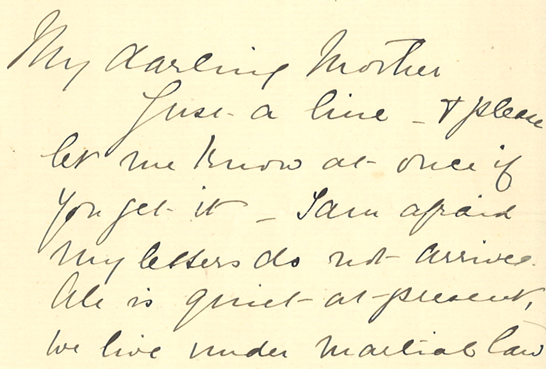 My darling Mother
Just a line – & please
let me know at once if
you get it – I am afraid
my letters do not arrive.
All is quiet at present,
we live under martial law